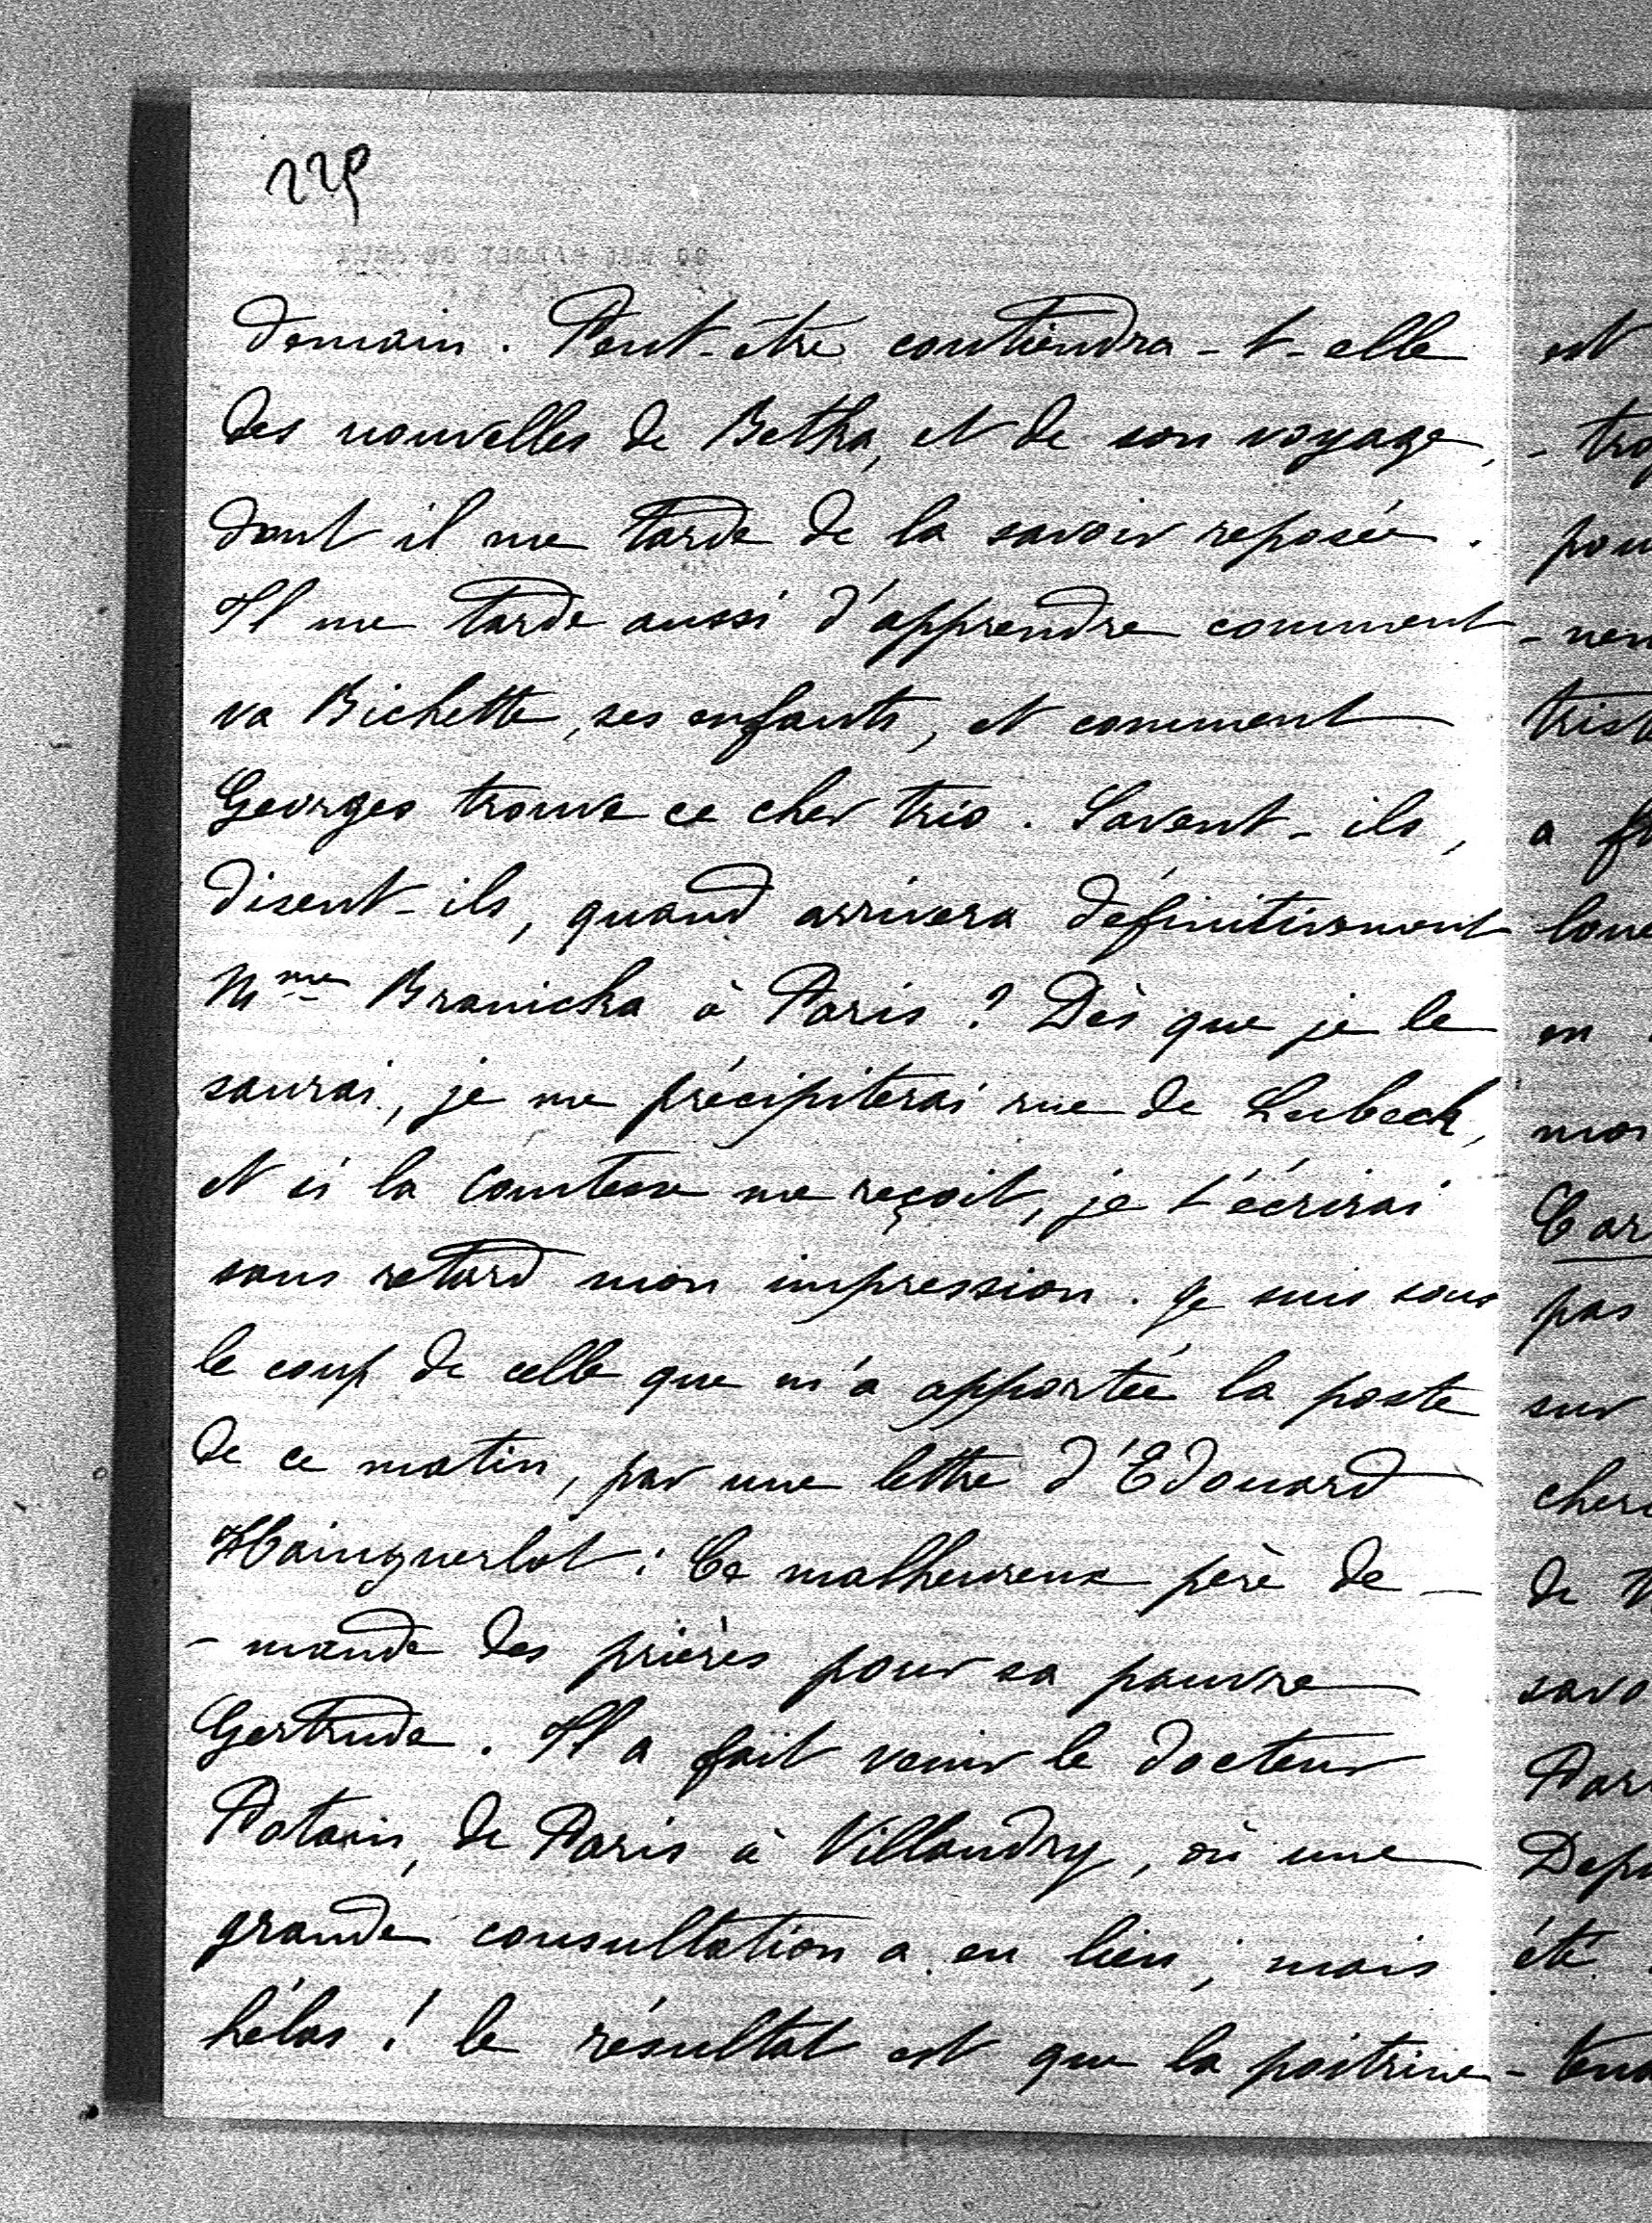 229
demain. Peut-être contiendra-t-elle
des nouvelles de Betka, et de son voyage,
dont il me tarde de la savoir reposée.
Il me tarde aussi d'apprendre comment
va Bichette, ses enfants, et comment
Georges trouve ce cher trio. Savent-ils,
disent-ils, quand arrivera définitivement
Mme Branicka à Paris ? Dès que je le
saurai, je me précipiterai rue de Lubeck,
et si la comtesse me reçoit, je t'écrirai
sans retard mon impression. Je suis sous
le coup de celle que m'a apportée la poste
de ce matin, par une lettre d'Edouard
Hainguerlot : Ce malheureux père de-
-mande des prières pour sa pauvre
Gertrude. Il a fait venir le docteur
Potain, de Paris à Villandry, où une
grande consultation a eu lieu ; mais
hélas ! le résultat est que la poitrine
est
pas
sur
de
été